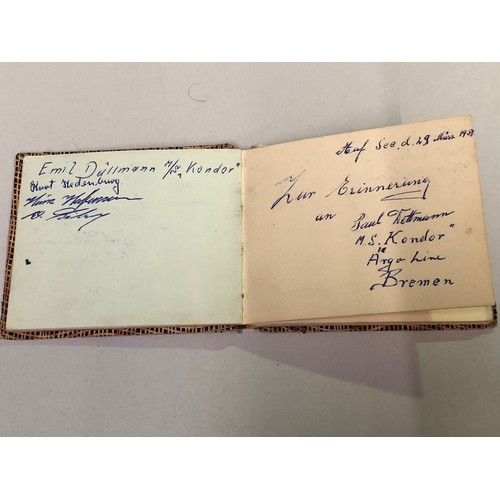 Emil Düllmann M/S „Kondor"
Kurt Hedenburg
Auf See, d. 29 März 1959
Zur Erinnerung
an
Paul Dettmann
M.S. „Kondor"
Argo Line
Bremen